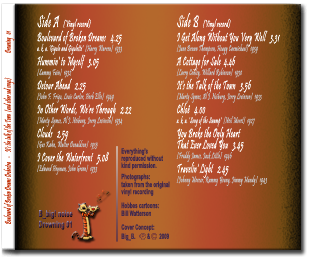 Side A (Vinyl record)
Boulevard of Broken Dreams 4.25
a.k.a. "Gigolo and Gigolette" (Harry Warren) 1933
Hummin' to Myself 3.05
(Sammy Fain) 1932
Detour Ahead 2.25
(John E. Frigo, Lou Carter, Herb Ellis) 1949
In Other Words, We're Through 2.22
(Marty Symes, Al J. Neiburg, Jerry Levinson) 1934
Clouds 2.59
(Gus Kahn, Walter Donaldson) 1935
I Cover the Waterfront 3.08
(Edward Heyman, John Green) 1933
Side B (Vinyl record)
I Get Along Without You Very Well 3.31
(Jane Brown Thompson, Hoagy Carmichael) 1939
A Cottage for Sale 4.46
(Larry Conley, Willard Robison) 1930
It's the Talk of the Town 3.56
(Marty Symes, Al J. Neiburg, Jerry Levinson) 1933
Cloud 4.00
a.k.a. "Song of the Swamp"
You Broke the Only Heart
That Ever Loved You 3.45
(Teddy James, Jack Little) 1946
Travelin' Light 2.45
(Johnny Mercer, Rummy Young, Jimmy Mundy) 1943
Everything's
reproduced without
kind permission.
Photographs:
taken from the original
vinyl recording
Robbee cartoons:
Bill Watterson
Cover Concept:
Big_N. ℗ & © 2009
Crooning #1